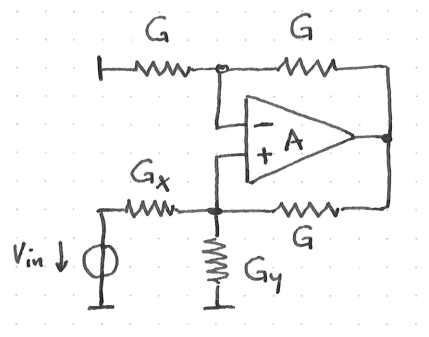 G G
−
A
+
Gx
G
Vin ↓
Gy